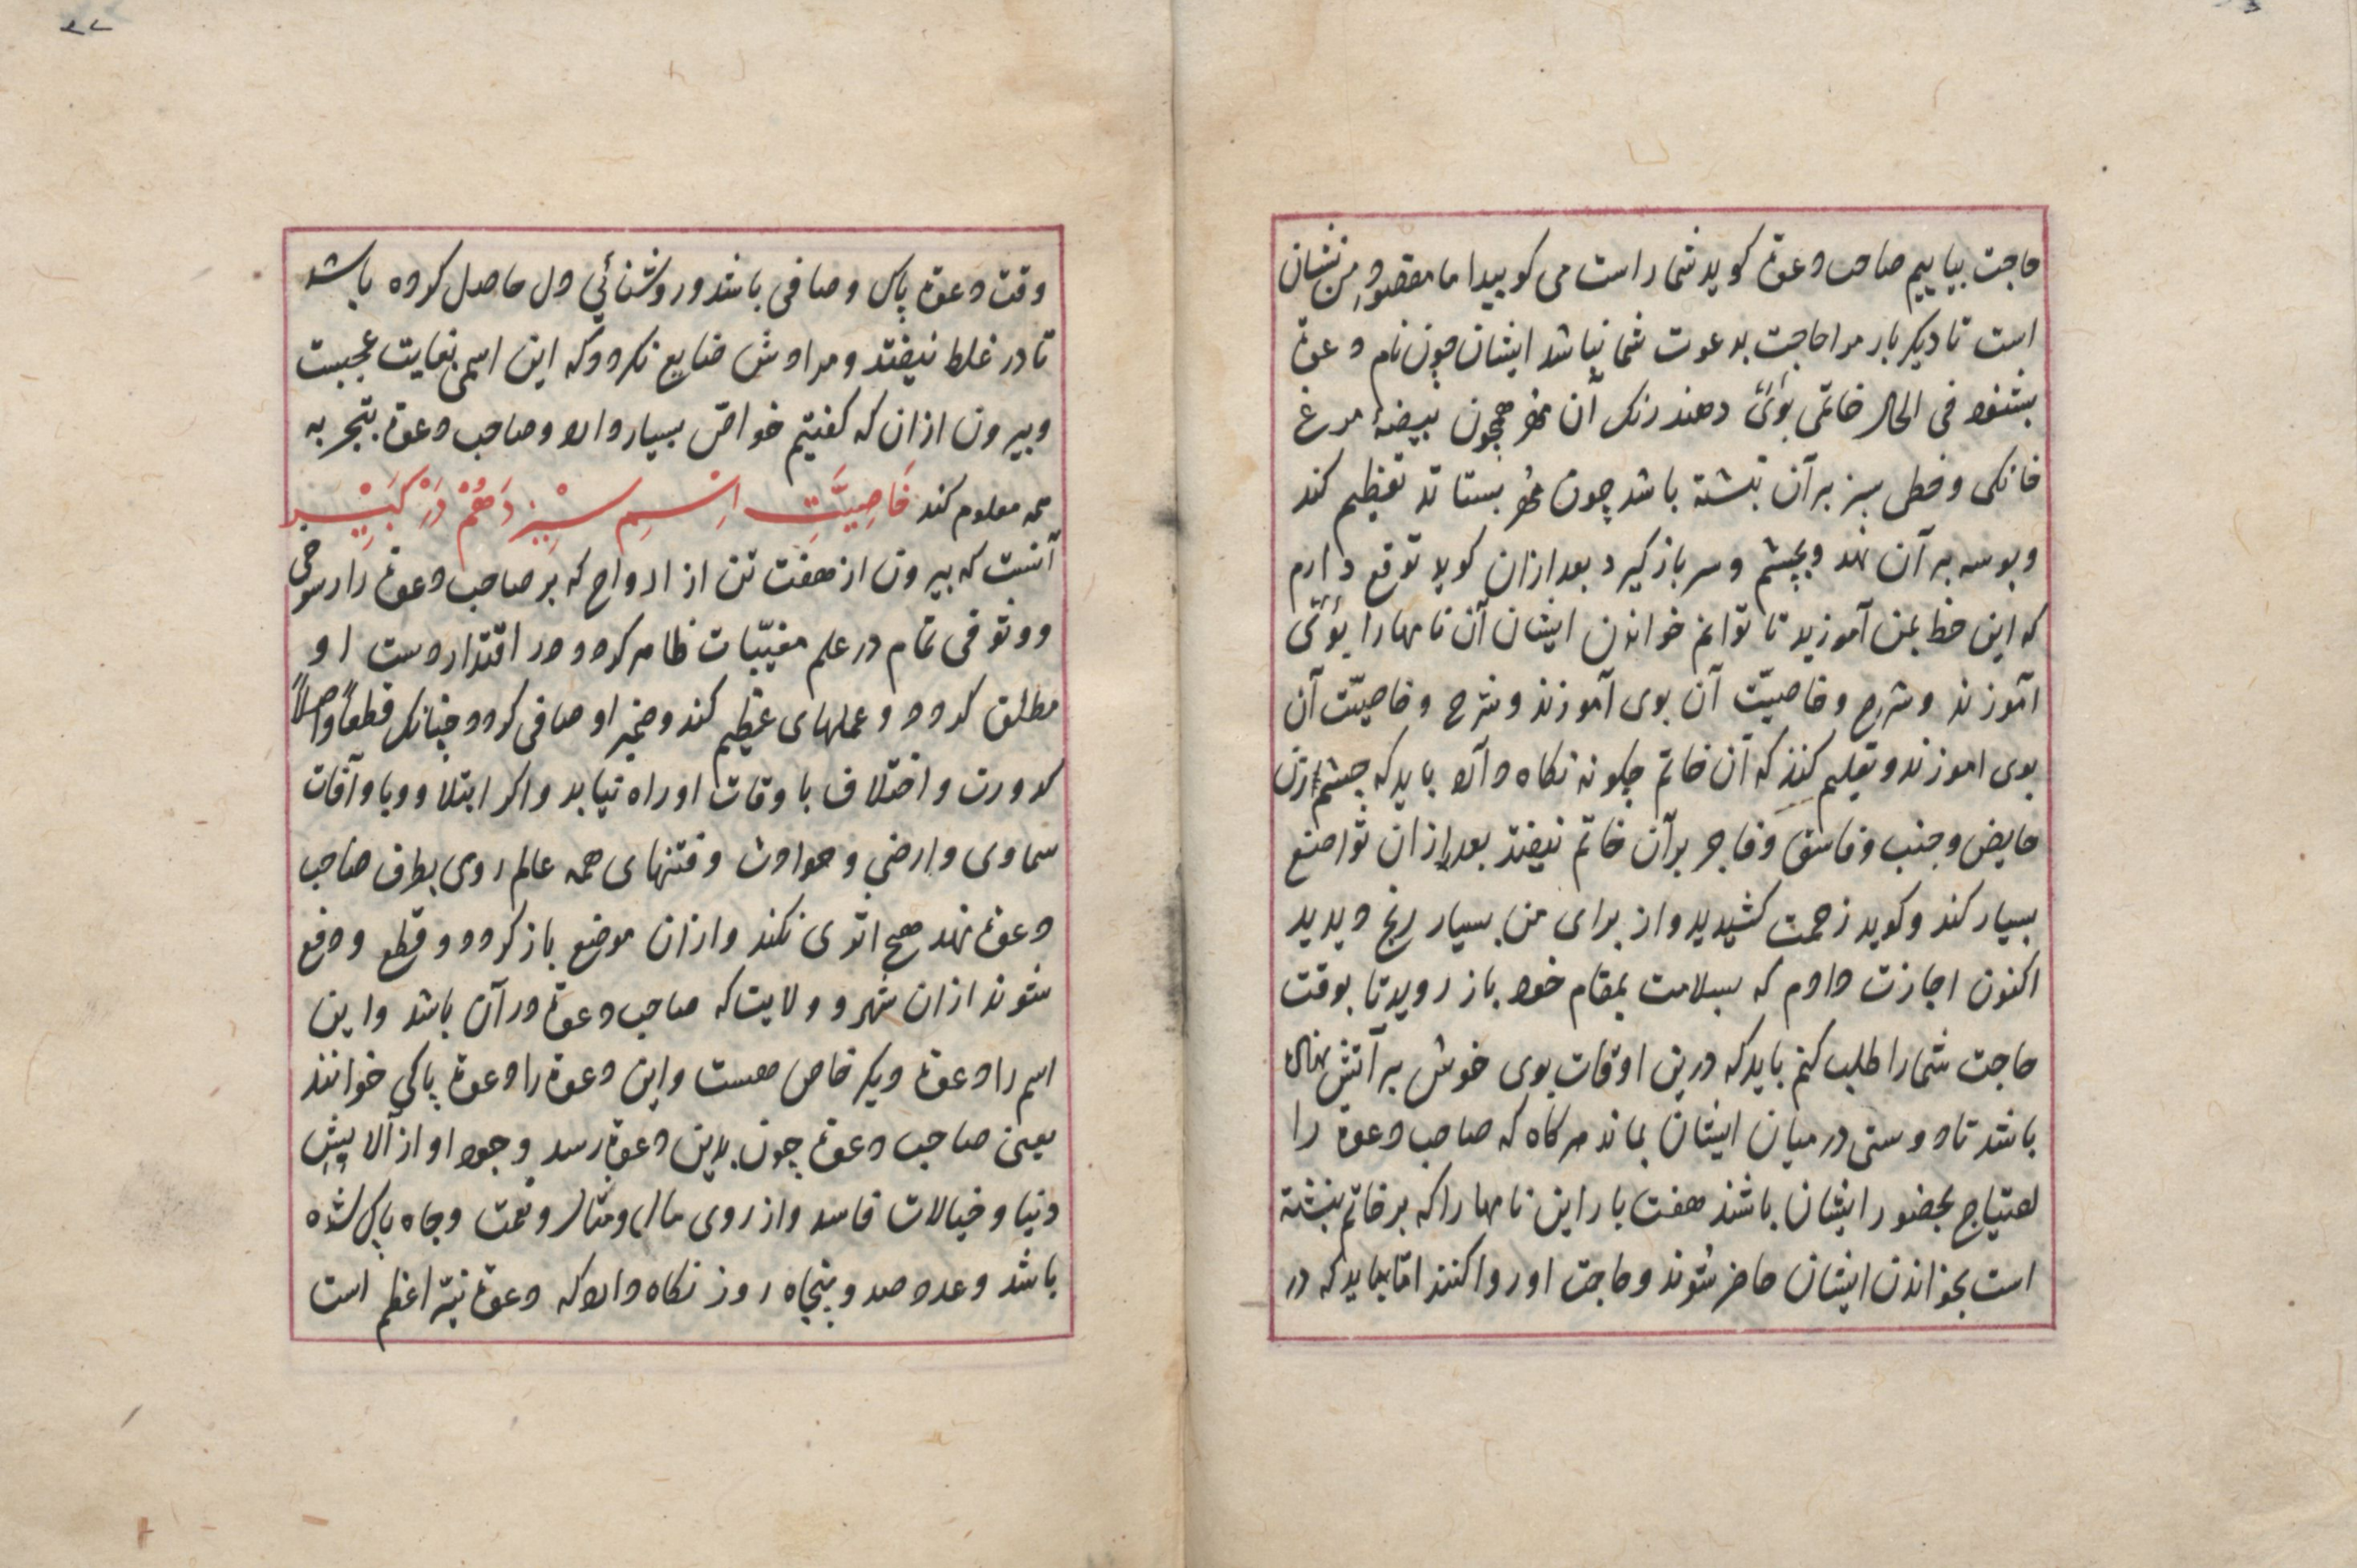 حاجت بیاییم صاحب دعوة کوید شما راست می کویید اما مقصود من نشان
است تا دیکر بار مرا حاجت بدعوت شما نباشد ایشان چون نام دعوة
بشنود فی الحال خاتمی بوئی دهند رنک آن مهر همچون بیضۀ مرغ
خانکی و خطی سبز بر آن نبشته باشد چون مهر بستاند تعظیم کند
و بوسه بر آن نهد و بچشم و سر باز کیرد بعد ازان کوید توقع دارم
که این خط بمن آموزید تا توانم خواندن ایشان آن نامها را بوئی
آموزند و شرح و خاصیّت آن بوی آموزند و شرح و خاصیّت آن
بوی اموزند و تعلیم کنند که آن خاتم چکونه نکاه دارد باید که چشم زن
حایض و جنب و فاسق و فاجر بر آن خاتم نیفتد بعد ازان تواضع
بسیار کند و کوید زحمت کشیدید و از برای من بسیار رنج دیدید
اکنون اجازت دادم که بسلامت بمقام خود باز روید تا بوقت
حاجت شما را طلب کنم باید که درین اوقات بوی خوش بر آتش نهاده
باشد تا دوستی در میان ایشان بماند هرکاه که صاحب دعوة را
احتیاج بحضور ایشان باشد هفت بار این نامها را که بر خاتم نبشته
است بخواندن ایشان حاضر شوند و حاجت او روا کنند امّا بباید که در
وقت دعوة پاک و صافی باشد و روشنائی دل حاصل کرده باشد
تا در غلط نیفتد و مرادش ضایع نکردد که این اسمی بغایت عجبست
و بیرون ازان که کفتیم خواصّ بسیار دارد و صاحب دعوة بتجربه
همه معلوم کند خَاصِیَّتِ اِسْمِ سِیْزدَهُمْ دَرْ کَبِیْر
آنست که بیرون از هفت تن از ارواح که بر صاحب دعوة را رسوخی
و وقوفی تمام در علم مغیّبات ظاهر کردد و در اقتدار دست او
مطلق کردد و عملهای عظیم کند و ضمیر او صافی کردد چنانک قطعاً و اصلاً
کدورت و اختلاف باوقات او راه نیابد و اکر ابتلا و وبا و آفات
سماوی و ارضی و حوادث و فتنهای همه عالم روی بطرف صاحب
دعوة نهد هیچ اثری نکند و ازان موضع باز کردد و قطع و دفع
شوند ازان شهر و ولایت که صاحب دعوة در آن باشد و این
اسم را دعوة دیکر خاص هست و این دعوة را دعوة پاکی خوانند
یعنی صاحب دعوة چون بدین دعوة رسد وجود او از آلایش
دنیا و خیالات فاسد و از روی مال و منال و نعمت و جاه پاک شده
باشد و عدد صد و پنجاه روز نکاه دارد که دعوة نیّر اعظم است